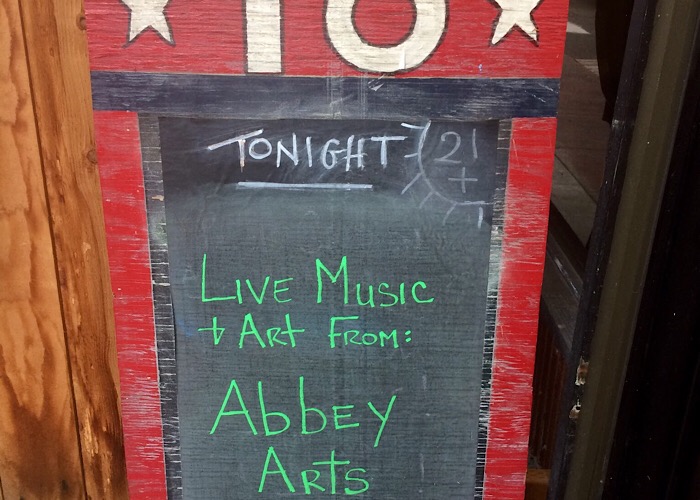 10
TONIGHT 21+
LIVE MUSIC
+ ART FROM:
ABBEY
ARTS